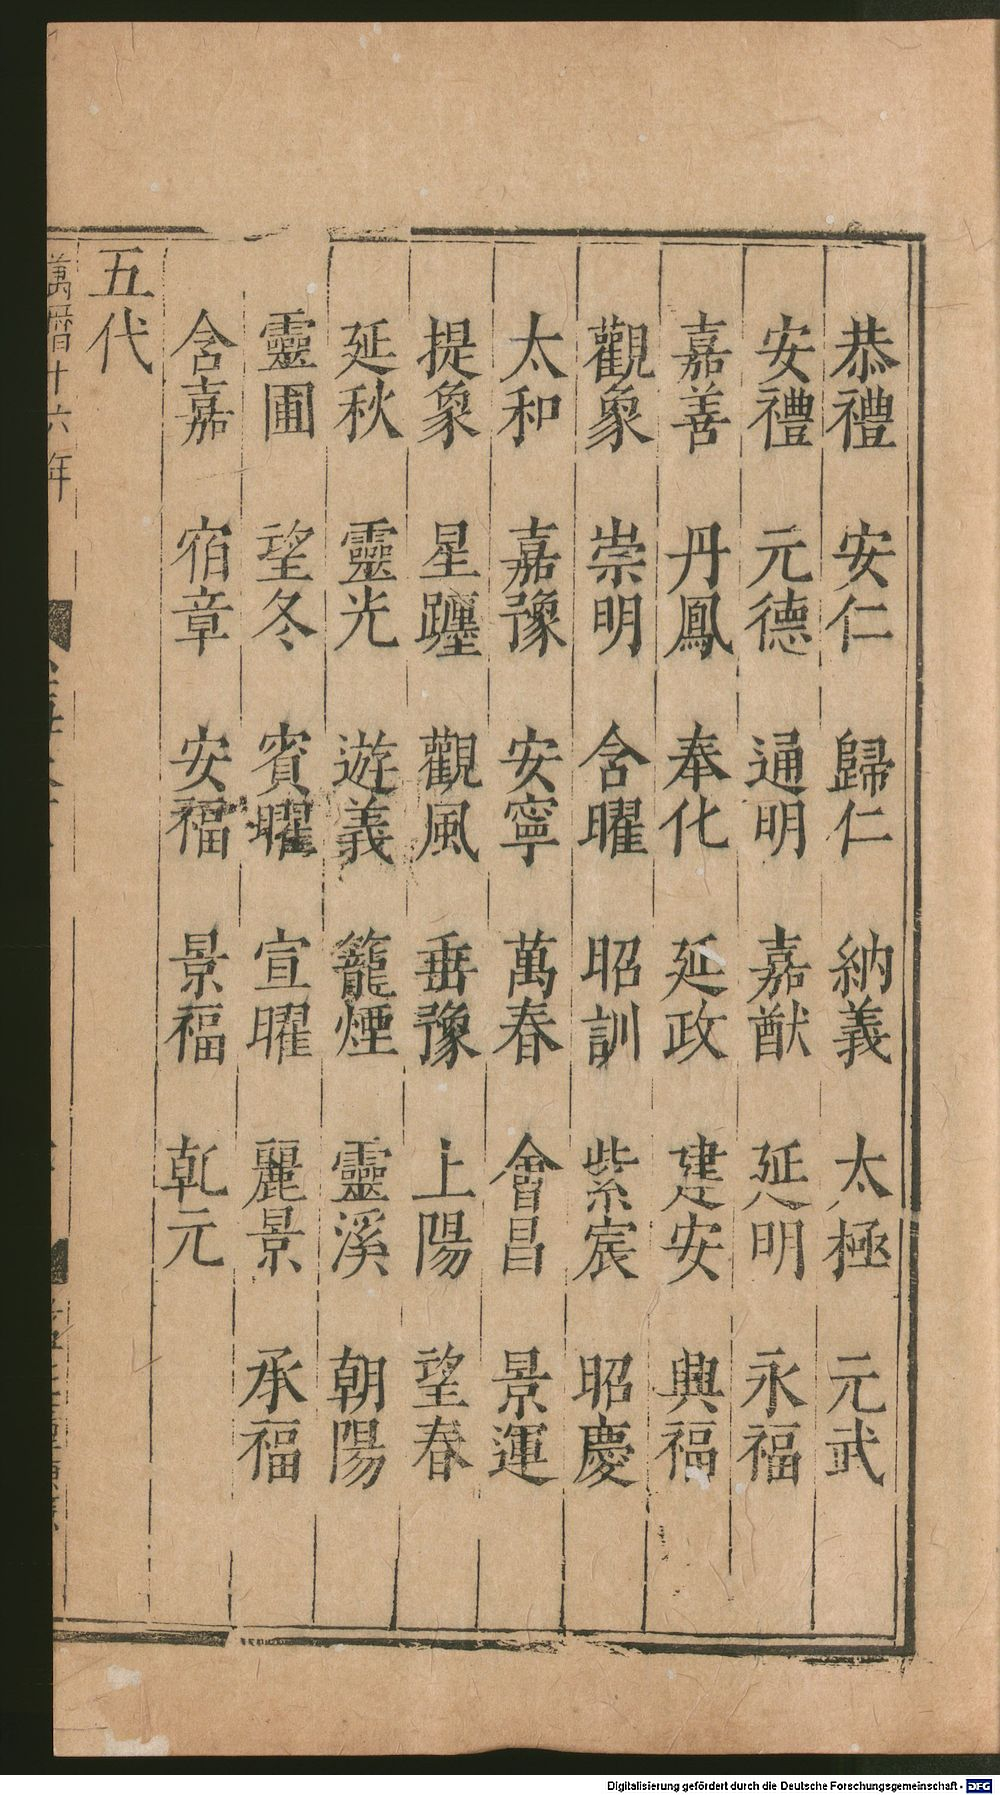 恭禮 安仁 歸仁 納義 太極 元武
安禮 元德 通明 嘉猷 延明 永福
嘉善 丹鳳 奉化 延政 建安 興福
觀象 崇明 含曜 昭訓 紫宸 昭慶
太和 嘉豫 安寧 萬春 會昌 景運
提象 星躔 觀風 垂豫 上陽 望春
延秋 靈光 遊義 籠煙 靈溪 朝陽
靈圃 望冬 賓曜 宣曜 麗景 承福
含嘉 宿章 安福 景福 乹元
五代
萬曆十六年
Digitalisierung gefördert durch die Deutsche Forschungsgemeinschaft - DFG